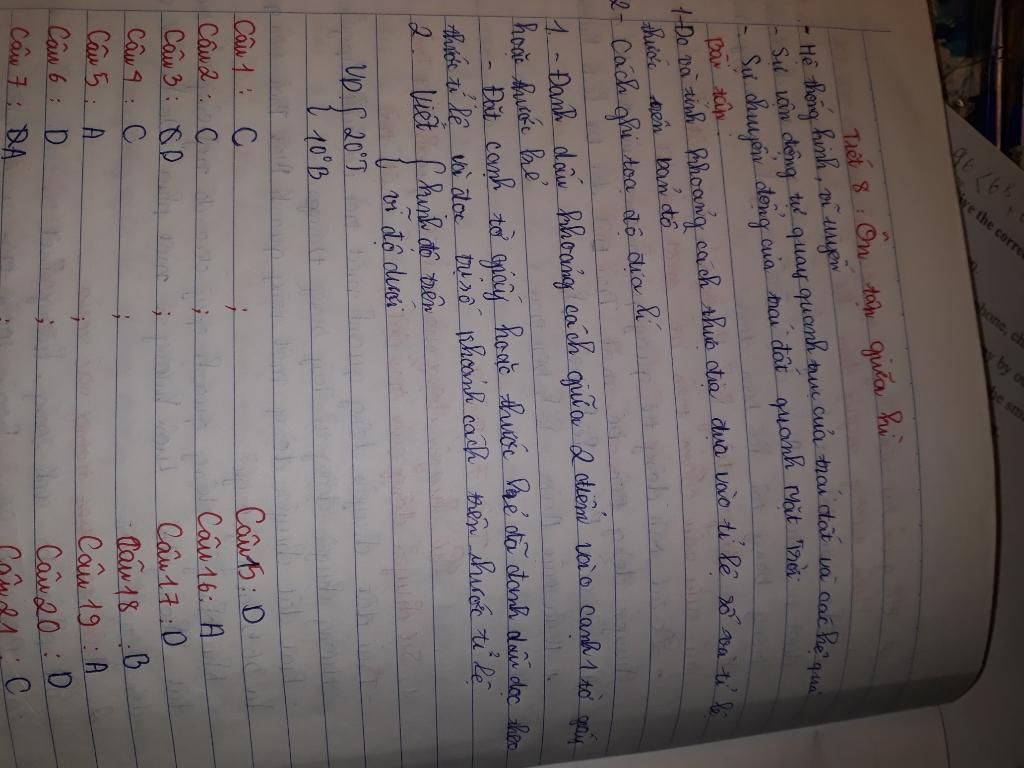 Tiết 8 : Ôn tập giữa kì
- Hệ thống kinh, vĩ tuyến
- Sự vận động tự quay quanh trục của trái đất và các hệ quả
- Sự chuyển động của trái đất quanh Mặt Trời
Bài tập
1- Đo và tính khoảng cách thực địa dựa vào tỉ lệ số và tỉ lệ
thước trên bản đồ
2- Cách ghi toạ độ địa lí
1. - Đánh dấu khoảng cách giữa 2 điểm vào cạnh 1 tờ giấy
hoặc thước kẻ
- Đặt cạnh tờ giấy hoặc thước kẻ đã đánh dấu dọc theo
thước tỉ lệ và đọc trị số khoảng cách trên thước tỉ lệ
2. Viết { kinh độ trên
{ vĩ độ dưới
VD { 20°T
{ 10°B
Câu 1 : C ; Câu 15 : D
Câu 2 : C ; Câu 16 : A
Câu 3 : D ; Câu 17 : D
Câu 4 : C ; Câu 18 : B
Câu 5 : A ; Câu 19 : A
Câu 6 : D ; Câu 20 : D
Câu 7 : A ; Câu 21 : C